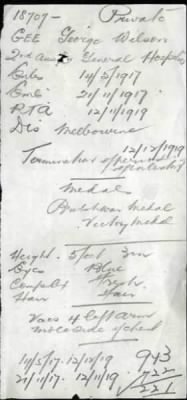 18707 - Private
GEE George Wilson
2nd Aust General Hospital
Enlis 14/5/1917
Emb 21/11/1917
RTA 12/11/1919
Dis Melbourne
12/12/1919
Termination of period
of enlistment
Medals
British War Medal
Victory Medal
Height. 5 feet 3 ins
Eyes Blue
Complex Fresh
Hair Fair
Vacs 4 left arm
Mole side of chest
14/5/17. 12/12/19 943
21/11/17. 12/11/19 722
221